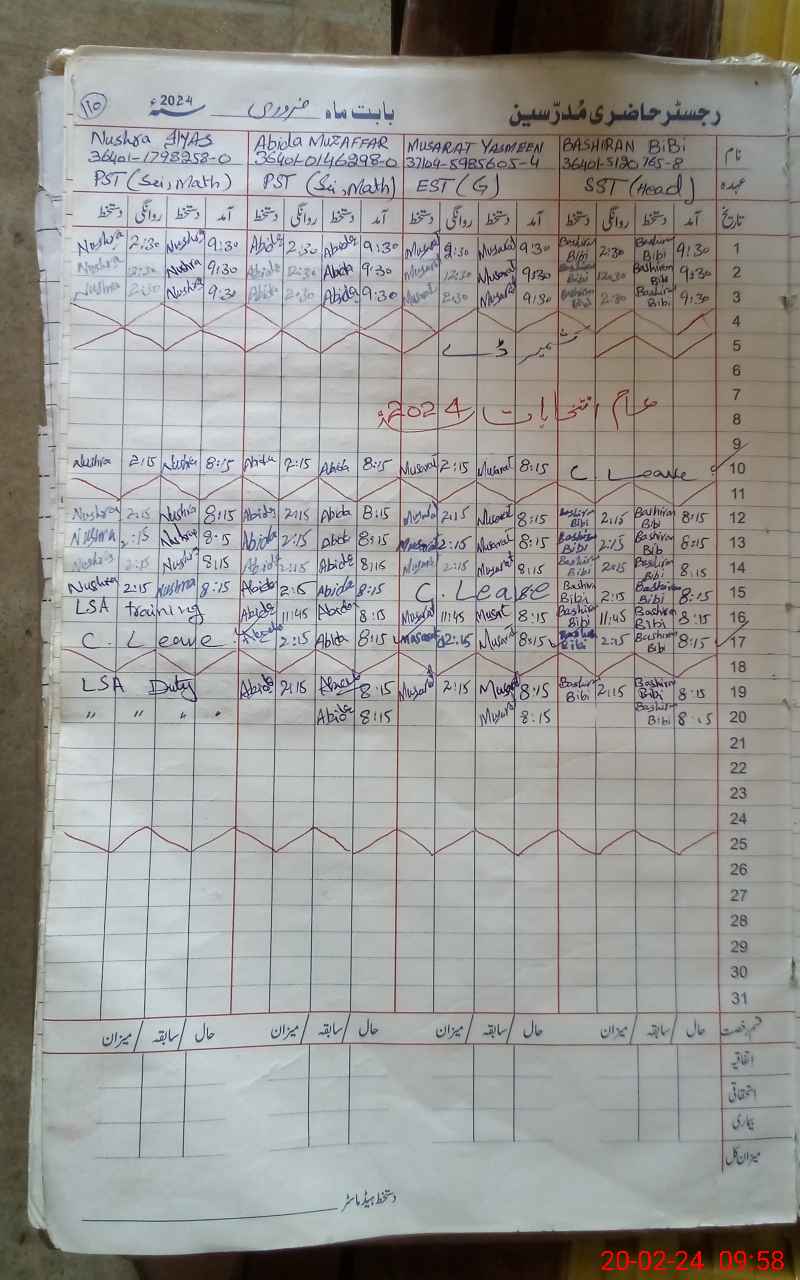 رجسٹر حاضری مُدرّسین بابت ماہ فروری سنہ 2024ء
110
نام BASHIRAN BiBi MUSARAT YASMEEN Abida MUZAFFAR Nushra ILYAS
36401-5120765-8 37104-5985605-4 36401-0146298-0 36401-1798258-0
عہدہ SST (Head) EST (G) PST (Sci, Math) PST (Sci, Math)
تاریخ آمد دستخط روانگی دستخط آمد دستخط روانگی دستخط آمد دستخط روانگی دستخط آمد دستخط روانگی دستخط
1 9:30 Bashiran Bibi 2:30 Bashiran Bibi 9:30 Musarat 2:30 Musarat 9:30 Abida 2:30 Abida 9:30 Nushra 2:30 Nushra
2 9:30 Bashiran Bibi 12:30 Bashiran Bibi 9:30 Musarat 12:30 Musarat 9:30 Abida 12:30 Abida 9:30 Nushra 12:30 Nushra
3 9:30 Bashiran Bibi 2:30 Bashiran Bibi 9:30 Musarat 2:30 Musarat 9:30 Abida 2:30 Abida 9:30 Nushra 2:30 Nushra
4
5 کشمیر ڈے
6
7
عام انتخابات 2024ء
8
9
10 C. Leave 8:15 Musarat 2:15 Musarat 8:15 Abida 2:15 Abida 8:15 Nushra 2:15 Nushra
11
12 8:15 Bashiran Bibi 2:15 Bashiran Bibi 8:15 Musarat 2:15 Musarat 8:15 Abida 2:15 Abida 8:15 Nushra 2:15 Nushra
13 8:15 Bashiran Bib 2:15 Bashiran Bibi 8:15 Musarat 2:15 Musarat 8:15 Abida 2:15 Abida 8:15 Nushra 2:15 Nushra
14 8:15 Bashiran Bibi 2:15 Bashiran Bibi 8:15 Musarat 2:15 Musarat 8:15 Abida 2:15 Abida 8:15 Nushra 2:15 Nushra
15 8:15 Bashiran Bibi 2:15 Bashira Bibi C. Leave 8:15 Abida 2:15 Abida 8:15 Nushra 2:15 Nushra
16 8:15 Bashiran Bibi 11:45 Bashiran Bibi 8:15 Musrat 11:45 Musarat 8:15 Abida 11:45 Abida LSA training
17 8:15 Bashiran Bibi 2:15 Bashiran Bibi 8:15 Musarat 2:15 Musarat 8:15 Abida 2:15 Abida C. Leave
18
19 8:15 Bashiran Bibi 2:15 Bashiran Bibi 8:15 Musarat 2:15 Musarat 8:15 Abida 2:15 Abida LSA Duty
20 8:15 Bashiran Bibi 8:15 Musarat 8:15 Abida " " " "
21
22
23
24
25
26
27
28
29
30
31
قسم رخصت حال / سابقہ / میزان حال / سابقہ / میزان حال / سابقہ / میزان حال / سابقہ / میزان
اتفاقیہ
استحقاقی
بیماری
میزان کل
دستخط ہیڈ ماسٹر
20-02-24 09:58